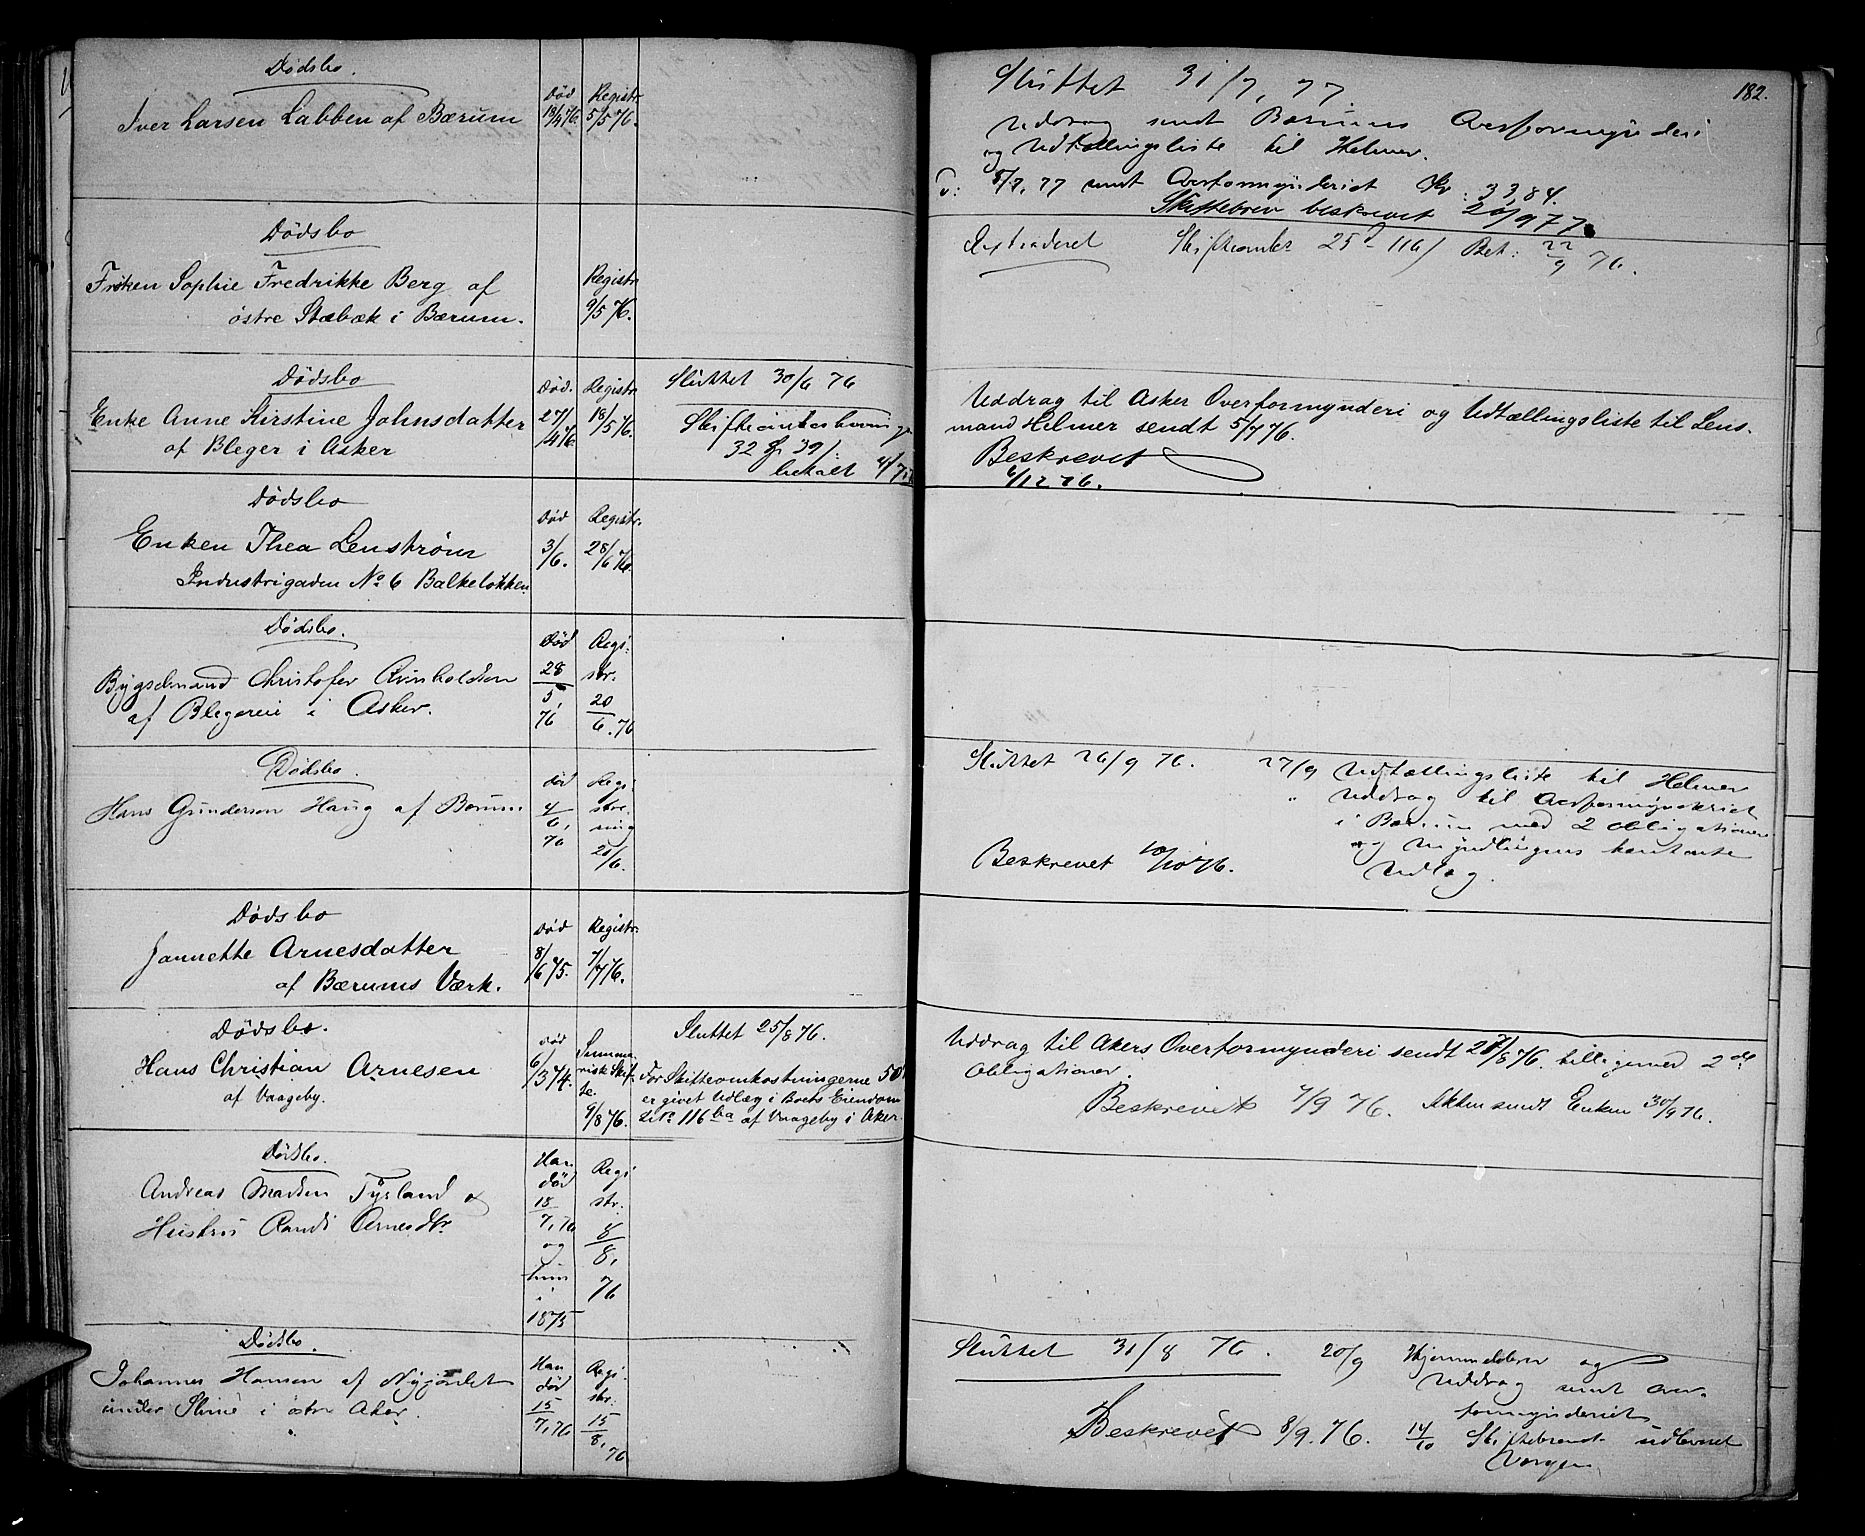 Dødsbo.
Iver Larsen Labben af Bærum
Død
18/4 76.
Registr.
5/5 76.
Sluttet 31/7, 77
182.
Uddrag sendt Bærums Overformynderi
og Udtællingsliste til Helmer.
5/9, 77 sendt Overformynderiet Kr. 33,84.
Skiftebrev beskrevet 20/9 77.
Dødsbo
Frøken Sophie Fredrikke Berg af
østre Stabæk i Bærum.
Registr
9/5 76.
Extraderet Skifteomk 25 116 Bet: 22/9 76.
Dødsbo
Enke Anne Kirstine Johnsdatter
af Bleger i Asker
Død.
27/4 76
Registr
18/5 76.
Sluttet 30/6 76
32 39
betalt
Uddrag til Asker Overformynderi og Udtællingsliste til Lens-
mand Helmer sendt 5/7 76.
Beskrevet
6/12 76.
Dødsbo
Enken Thea Lenstrøm
Industrigaden No 6 Balkeløkken
Død
3/6.
Registr.
28/6 76.
Dødsbo.
Bygselmand Christofer Arnholdsen
af Blegereie i Asker.
Død
28
5,
76
Regi-
str.
20
6. 76
Dødsbo.
Hans Gundersen Haug af Bærum
død
4
6,
76
Regi-
stre-
ring
20/6.
Sluttet 26/9 76. 27/9 Udtællingsliste til Helmer
" Uddrag til Overformynderiet
i Bærum med 2 Obligationer
og Myndlingens kontante
Udlæg.
Beskrevet 10/10 76.
Dødsbo
Jannette Arnesdatter
af Bærums Værk.
Død
8/6 75.
Registr.
7/7 76.
Dødsbo.
Hans Christian Arnesen
af Vaageby.
død
6/3 74.
Summa-
risk Skif-
te.
9/8 76.
Sluttet 25/8 76.
For Skifteomkostningerne 50
er givet Udlæg i Boets Eiendom
L.No 116 ba af Vaageby i Aker.
Uddrag til Akers Overformynderi sendt 28/8 76. tilligemed 2 de
Obligationer.
Beskrevet 7/9 76. Akten sendt Enken 30/9 76.
Dødsbo.
Andreas Madsen Tysland og
Hustru Randi Arnesdtr.
Han
død
18
7, 76
og
hun
i
1875
Regi
str.
8
8,
76
Dødsbo.
Johannes Hansen af Nyjordet
under Slime i østre Aker.
Han
død
15
7, 76
Regi-
str.
15
8,
76
Sluttet 31/8 76. 20/9 Hjemmelsbrev og
Uddrag sendt Over-
formynderiet
Beskrevet 8/9. 76. 14/10 Skiftebrevet udleveret
Vergen.